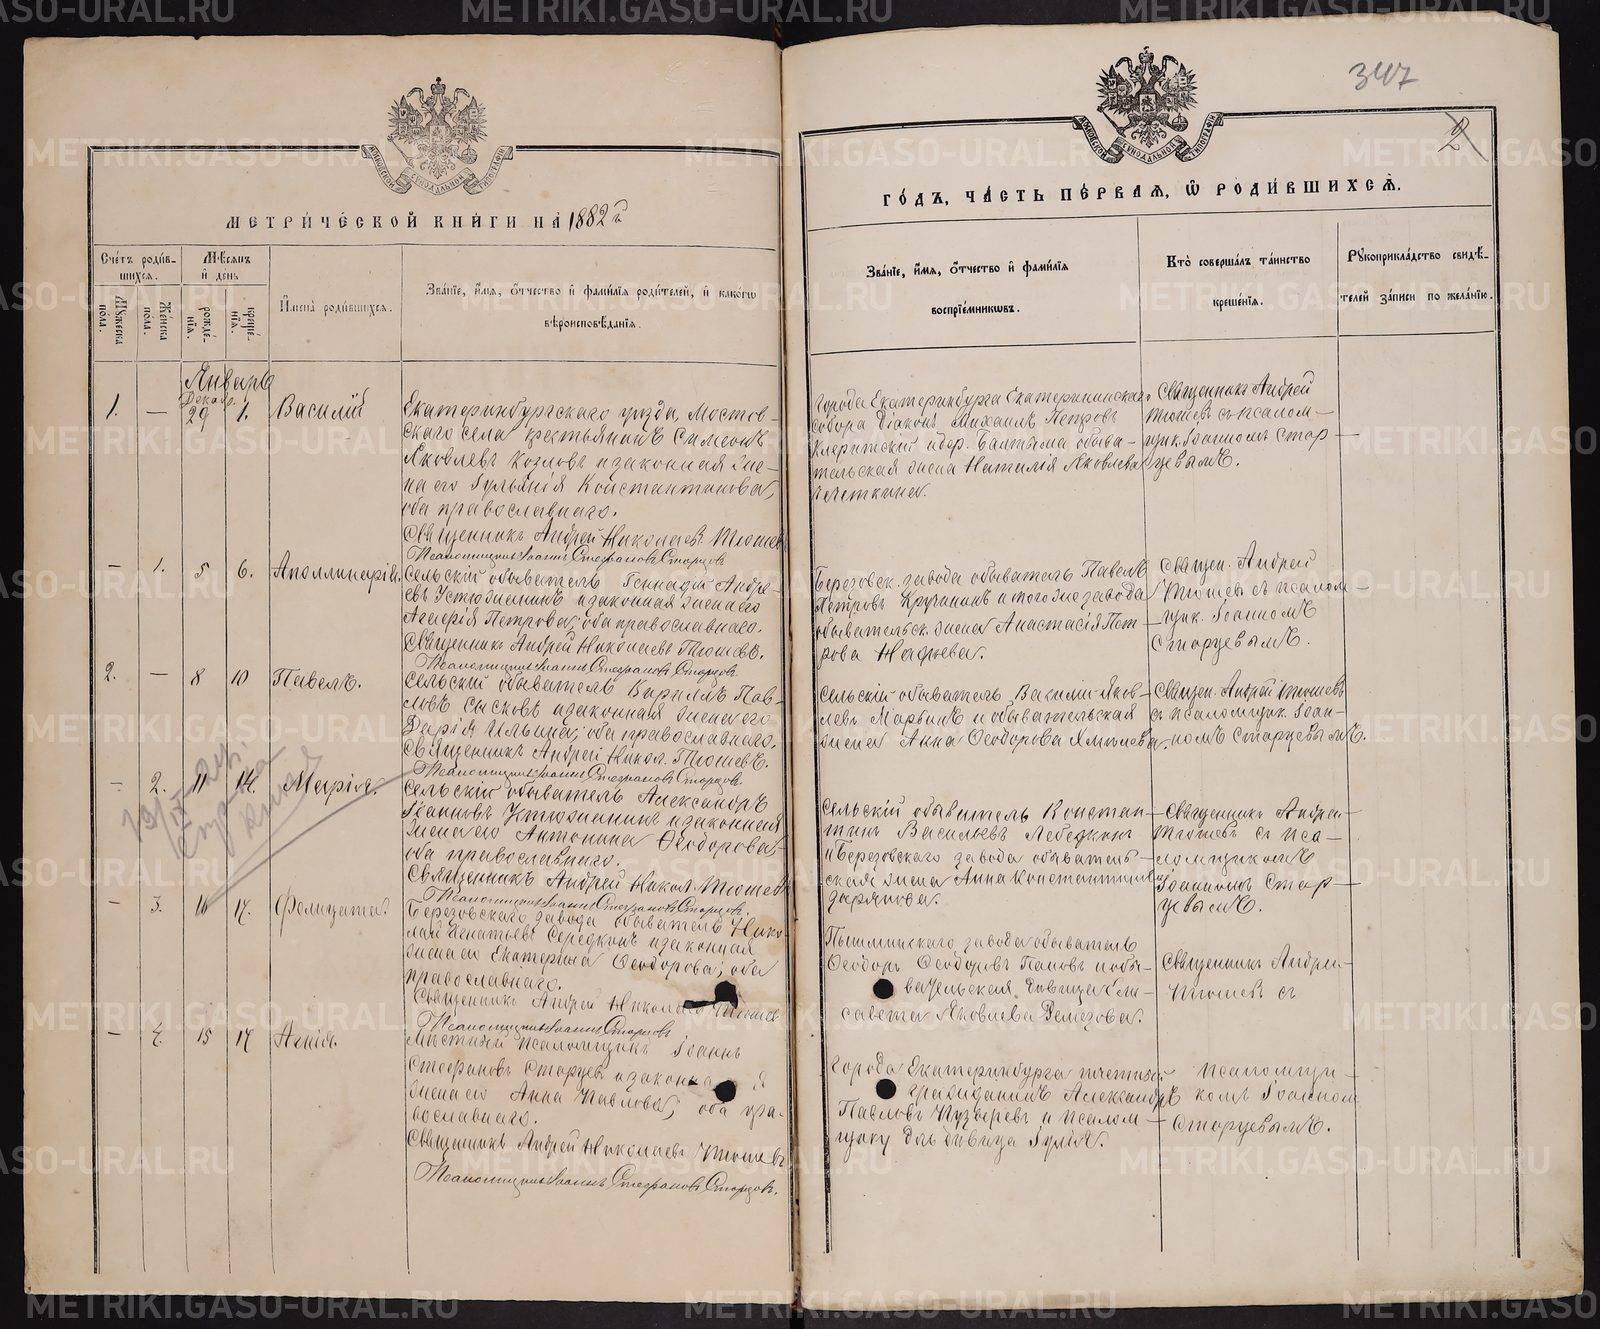 347
2
МЕТРИ́ЧЕСКОЙ КНИ́ГИ НА 1882 й
ГО́ДЪ, ЧА́СТЬ ПЕ́РВАЯ, Ѿ РОДИ́ВШИХСЯ.
Сче́тъ роди́в-
шихся.
Мѣсяцъ
и день
Мꙋжеска
пола.
Же́нска
пола.
рожде́-
нїя.
креще́-
нїя.
И҆мена̀ роди́вшихся.
Зва́нїе, и҆́мя, ѻ҆́тчество и҆ фами́лїя роди́телей, и҆ како́гѡ
вѣроисповѣ́данїя.
Зва́нїе, и҆́мя, ѻ҆́тчество и҆ фами́лїя
воспрїе́мникѡвъ.
Кто̀ соверша́лъ та́инство
креще́нїя.
Рꙋкоприкла́дство свидѣ́-
телей за́писи по жела́нїю.
Январь
Декабр.
1. — 29 1. Василій
Екатеринбургскаго уѣзда, Мостов-
скаго села крестьянинъ Симеонъ
Яковлевъ Козловъ и законная же-
на его Іульянія Константинова,
оба православнаго.
Священникъ Андрей Николаевъ Тюшев
Псаломщикъ Іоаннъ Стефановъ Старцовъ
Города Екатеринбурга Екатерининскаго
собора діаконъ Михаилъ Петровъ
обыва-
тельская жена Наталія Яковлева
Священникъ Андрей
Тюшевъ съ псалом-
щик. Іоанномъ Стар-
цевымъ.
— 1. 5 6. Аполлинарія.
Сельскій обыватель Геннадій Андре-
евъ Устюжанинъ и законная жена его
Петрова; оба православнаго.
Священникъ Андрей Николаевъ Тюшевъ.
Псаломщикъ Іоаннъ Стефановъ Старцовъ
Березовск. завода обыватель Павелъ
Петровъ Кручининъ и того же завода
обывательск. жена Анастасія Пет-
рова
Священ. Андрей
Тюшевъ съ псалом-
щик. Іоанномъ
Старцевымъ.
2. — 8 10 Павелъ.
Сельскій обыватель Кириллъ Пав-
ловъ Сысковъ и законная жена его
Дарія Ильина; оба православнаго.
Священникъ Андрей Никол. Тюшевъ.
Псаломщикъ Іоаннъ Стефановъ Старцов.
Сельскій обыватель Василій Яков-
левъ и обывательская
жена Анна Ѳеодорова
Священ. Андрей Тюшевъ
съ псаломщик. Іоан-
номъ Старцевымъ.
— 2. 11 14. Марія.
Сельскій обыватель Александръ
Іоанновъ Устюжанинъ и законная
жена его Антонина Ѳеодорова,
оба православнаго.
Священникъ Андрей Никол. Тюшев
Псаломщикъ Іоаннъ Стефановъ Старцов.
Сельскій обыватель Констан-
тинъ Васильевъ Лебедкинъ
и Березовскаго завода обыватель-
ская жена Анна Константинова
Священникъ Андрей
Тюшевъ съ пса-
ломщикомъ
Іоанномъ Стар-
цевымъ.
— 3. 16 17. Фелицата.
Березовскаго завода обыватель Нико-
лай Игнатьевъ Середкинъ и законная
жена его Екатерина Ѳеодорова; оба
православнаго.
Священникъ Андрей Николаев Тюшев
Псаломщикъ Іоаннъ Старцов.
Пышминскаго завода обыватель
Ѳеодоръ Ѳеодоровъ Пановъ и обы-
вательская дѣвица Ели-
савета Яковлева Ремезова.
Священникъ Андрей
Тюшевъ съ
— 4. 15 17 Агнія.
Мѣстный псаломщикъ Іоаннъ
Стефановъ Старцевъ и законная
жена его Анна Павлова; оба пра-
вославнаго.
Священникъ Андрей Николаевъ Тюшевъ
Псаломщикъ Іоаннъ Стефановъ Старцов.
Города Екатеринбурга почетный
гражданинъ Александръ
Павловъ Пузыревъ и псалом-
щику дѣвица Іулія.
Псаломщи-
комъ Іоанном
Старцевымъ.
METRIKI.GASO-URAL.RU